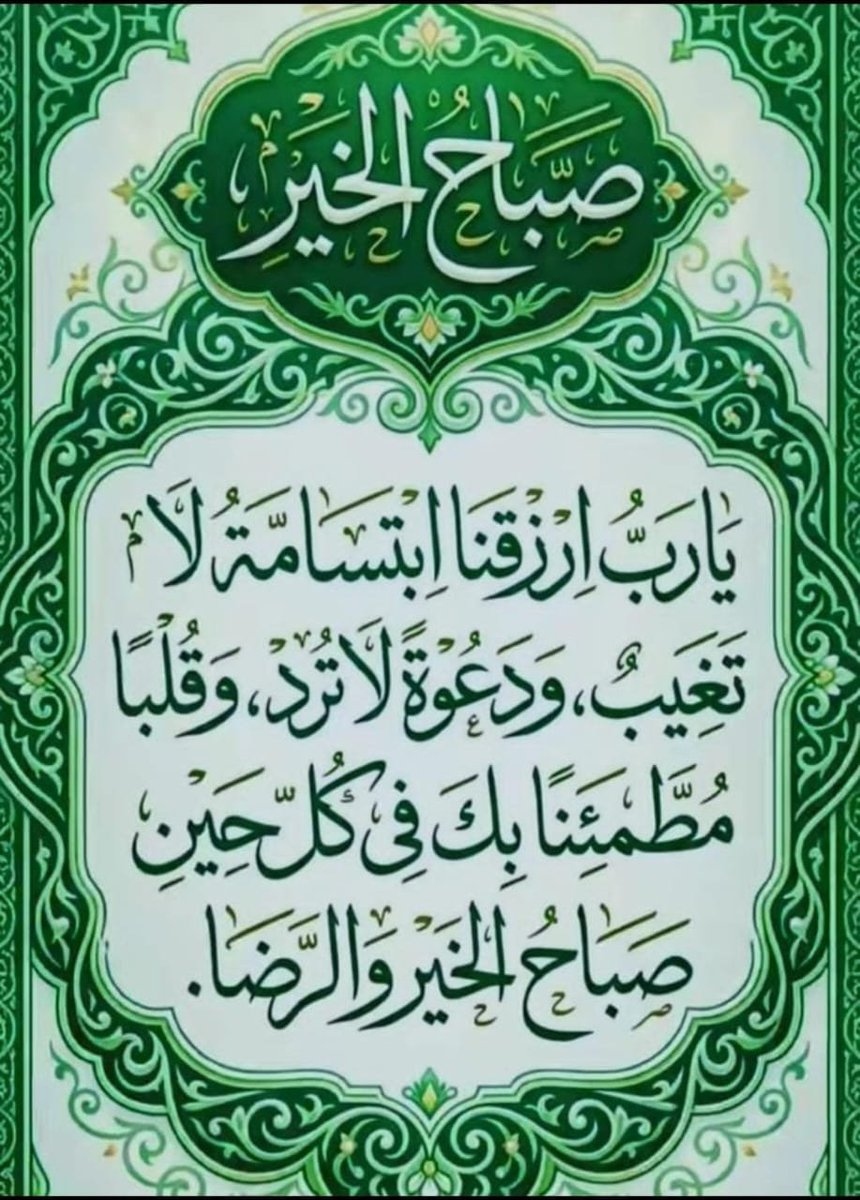 صَبَاحُ الخَيْرِ
يَارَبُّ اِرْزُقْنَا اِبْتِسَامَةُ لَا
تَغِيَبُ، وَدَعْوَةً لَا تُرَدْ، وَقُلْبًا
مُطَّمَئِنًا بِكَ فِي كُلّ حِيْنِ
صَبَاحُ الخَيْر وَالرَّضَا.